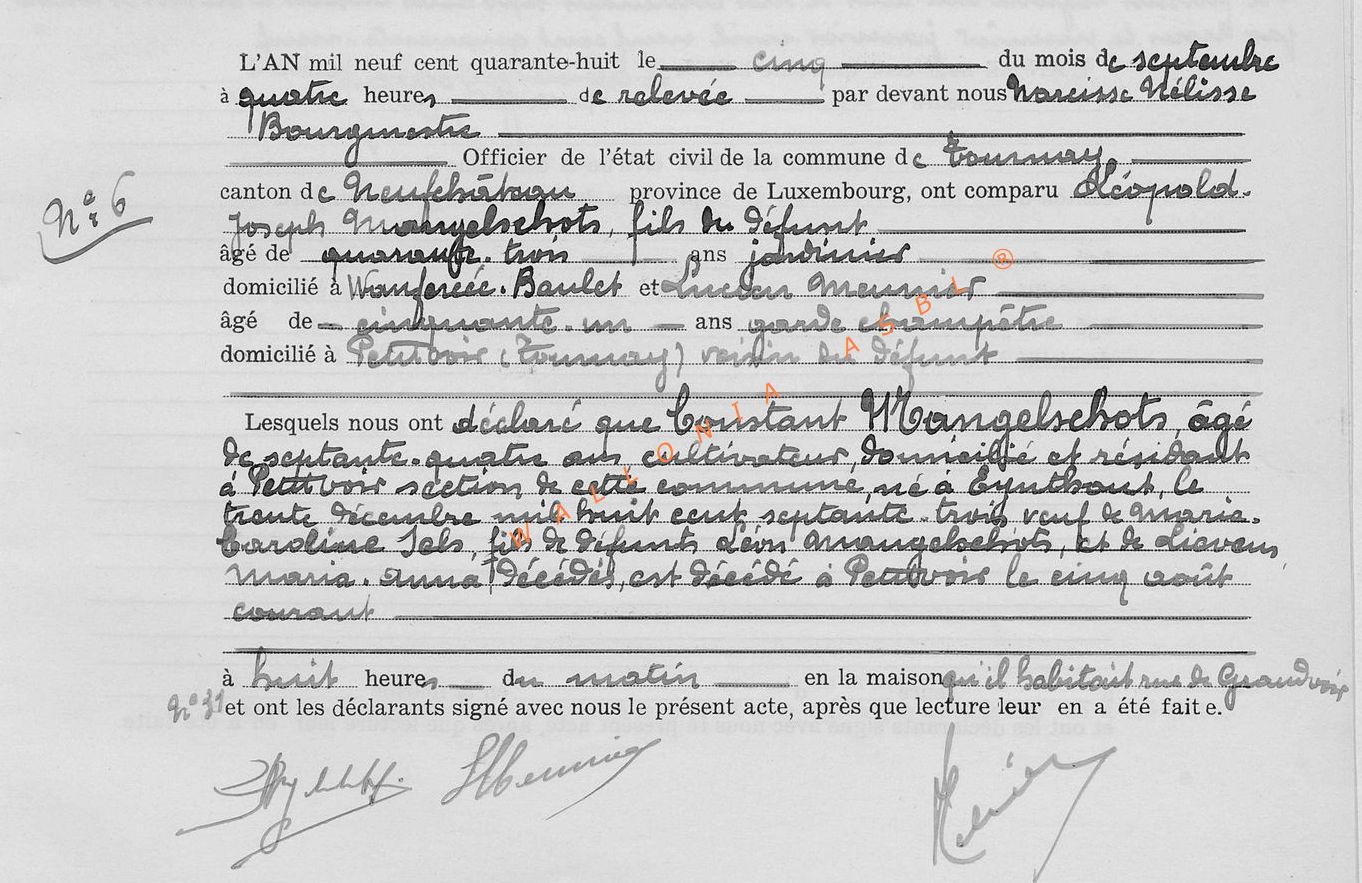 L'AN mil neuf cent quarante-huit le cinq du mois de septembre
à quatre heures de relevée par devant nous Narcisse Nélisse
Bourgmestre
Officier de l'état civil de la commune de Tournay,
N° 6
canton de Neufchâteau province de Luxembourg, ont comparu Léopold-
Joseph Mangelschots, fils du défunt
âgé de quarante-trois ans jardinier
domicilié à Wanfercée-Baulet et Lucien Meunier
âgé de cinquante-un ans garde champêtre
domicilié à Petitvoir (Tournay) voisin du défunt
Lesquels nous ont déclaré que Constant Mangelschots, âgé
de septante-quatre ans cultivateur, domicilié et résidant
à Petitvoir section de cette commune, né à Eynthout, le
trente décembre mil huit cent septante-trois veuf de Maria-
Caroline Sels, fils de défunts Léon Mangelschots, et de Lievens
Maria-Anna, décédés, est décédé à Petitvoir le cinq août
courant
à huit heures du matin en la maison qu'il habitait rue de Grandvoir
N° 31 et ont les déclarants signé avec nous le présent acte, après que lecture leur en a été faite.
LMeunier
WALLONIA ASBL ®